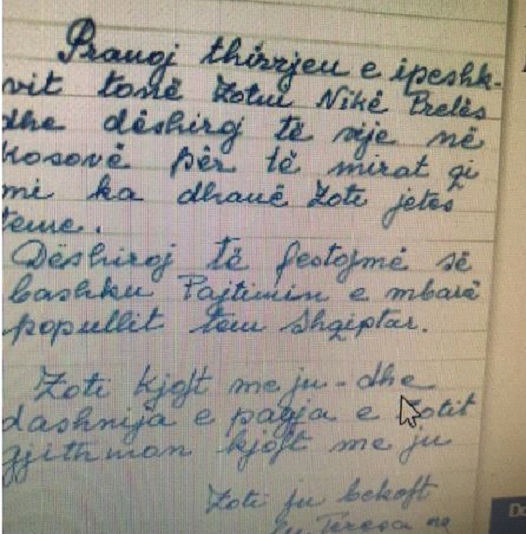 Pranoj thirrjen e ipeshk-
vit tonë Zotni Nikë Prelës
dhe dëshiroj të vije në
Kosovë për të mirat qi
mi ka dhanë Zoti jetës
teme.
Dëshiroj të festojmë së
bashku Pajtimin e mbarë
popullit tem Shqiptar.
Zoti kjoft me ju - dhe
dashnija e paqja e Zotit
gjithmon kjoft me ju
Zoti ju bekoft
Teresa